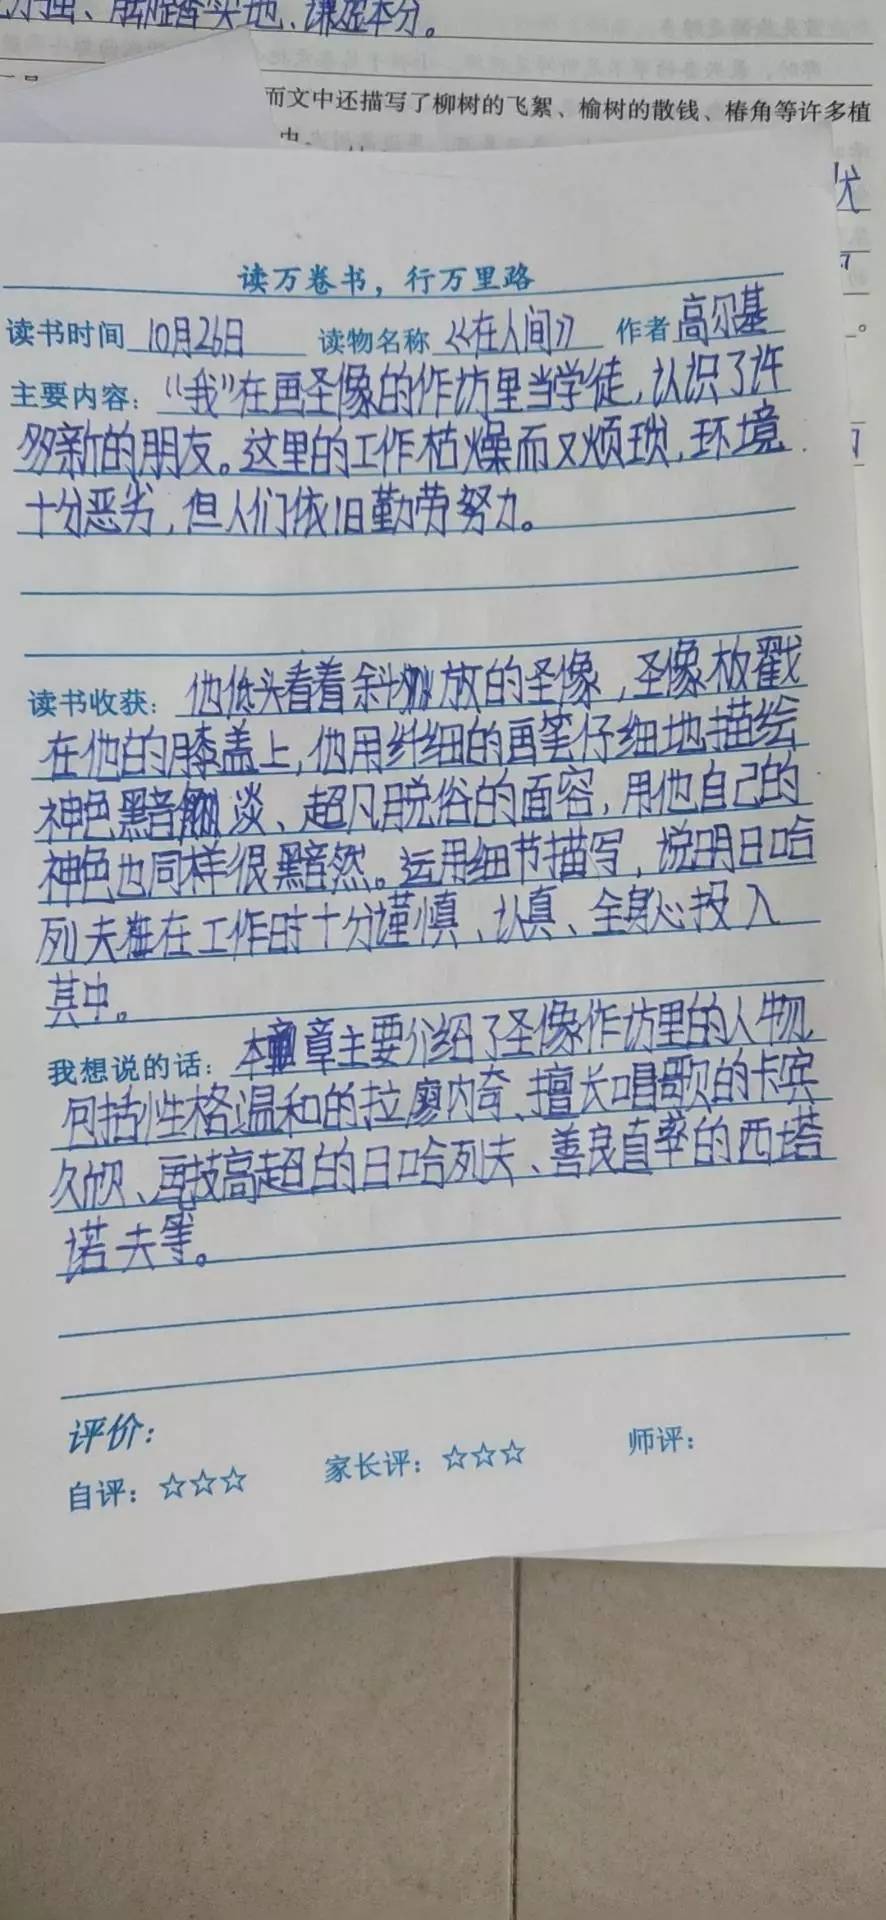 脚踏实地、谦虚本分。
而文中还描写了柳树的飞絮、榆树的散钱、椿角等许多植
读万卷书，行万里路
读书时间 10月26日 读物名称 《在人间》 作者 高尔基
主要内容：“我”在画圣像的作坊里当学徒，认识了许
多新的朋友。这里的工作枯燥而又烦琐，环境
十分恶劣，但人们依旧勤劳努力。
读书收获：他低头看着斜放的圣像，圣像板戳
在他的膝盖上，他用纤细的画笔仔细地描绘
神色黯淡、超凡脱俗的面容，用他自己的
神色也同样很黯然。运用细节描写，说明日哈
列夫在工作时十分谨慎、认真、全身心投入
其中。
我想说的话：本章主要介绍了圣像作坊里的人物，
包括性格温和的拉廖内奇、擅长唱歌的卡宾
久欣、画技高超的日哈列夫、善良直率的西塔
诺夫等。
评价：
自评：☆☆☆ 家长评：☆☆☆ 师评：